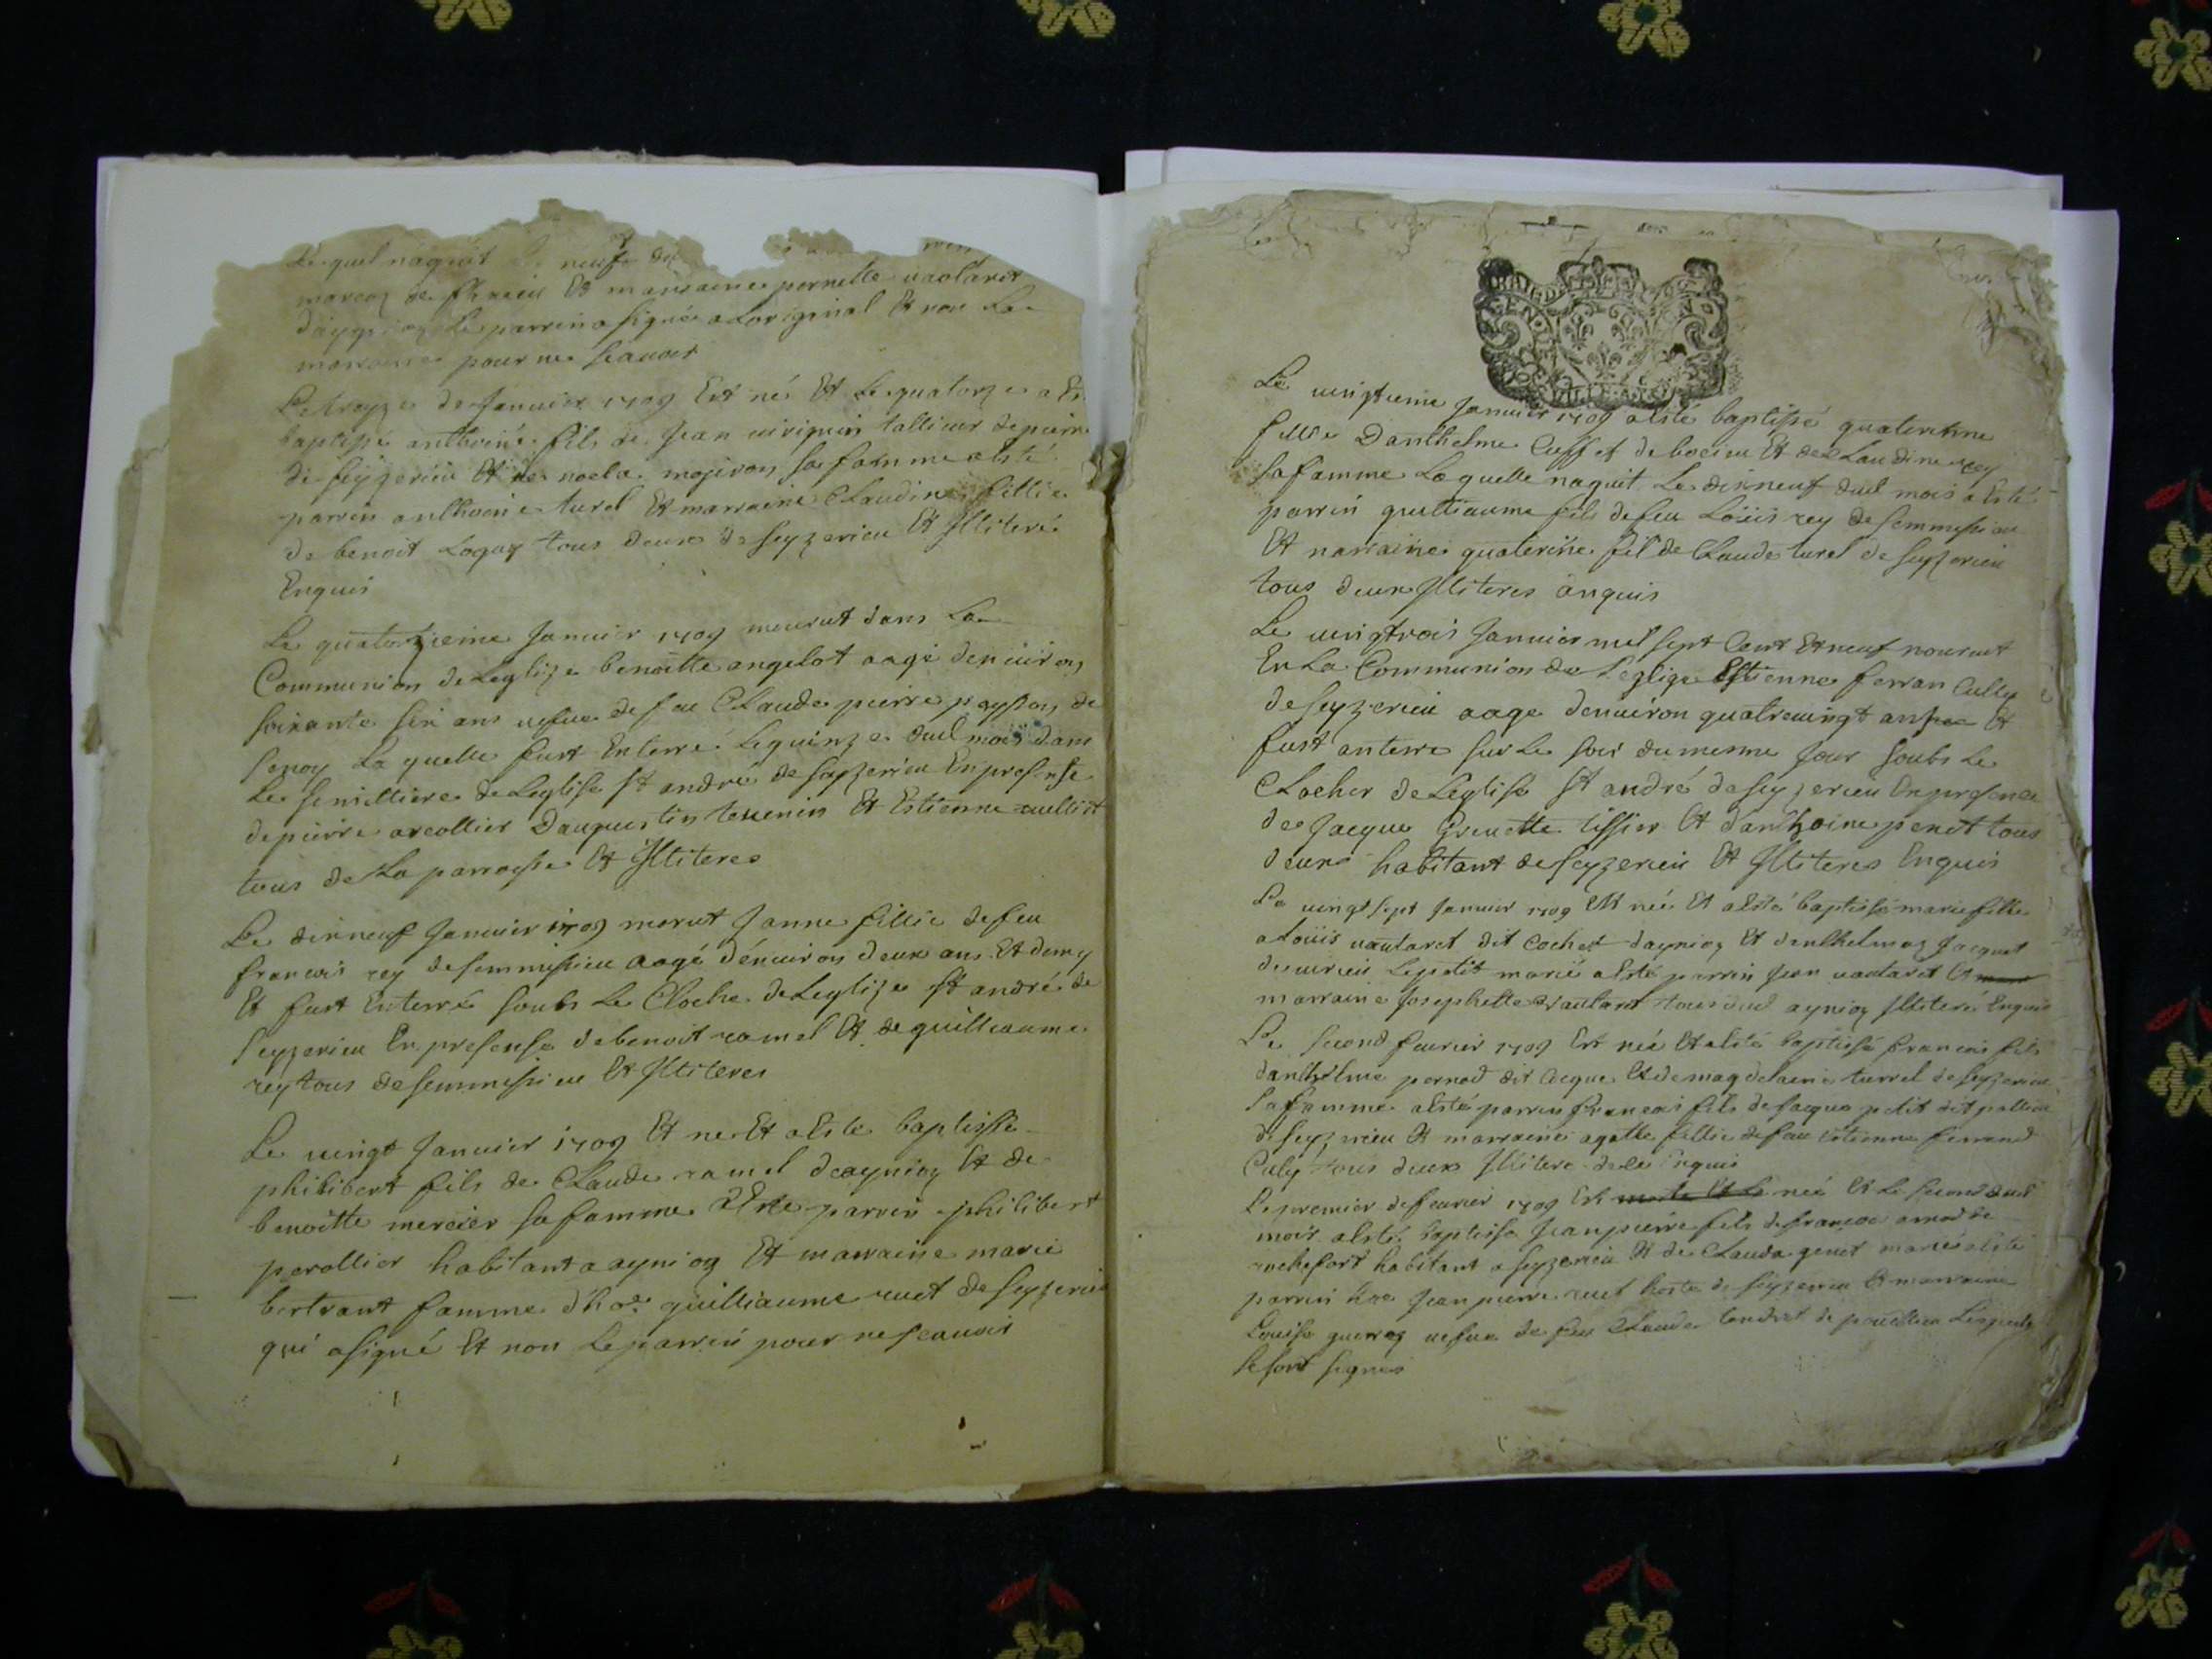 Lequel naquit le neufe du
marcoz de flaxieu Et marraine pernette vautaret
le parrin a signée a Loriginal Et non La
marraine pour ne scauoir
Le treyze de Januier 1709 Est né Et Le quatorze a Es
baptissé anthoine fils de Jean tallieur de pierre
de seyzerieu Et de noela sa famme a esté
parrin anthoine turel Et marraine Claudine fillie
de benoit Loguz tous deux de seyzerieu Et Illiteré
Enquis
Le quatorzieme Januier 1709 mourut dans La
Communion de Leglize benoitte angelot aagé denuiron
soixante six ans uefue de feu Claude pierre de
La quelle fust Enterré Le quinze dud mois dans
Le semittiere de Leglise st andré de seyzerieu En presense
de pierre arcollier Daugustin teuenin Et Estienne
tous de La parroisse Et Illiteres
Le dixneuf Januier 1709 morut Janne fillie de feu
francois rey de semmissieu aagé dénuiron deux ans Et demy
Et fust Enterré soubs Le Cloche de Leglize st andré de
seyzerieu En presense de benoit ramel Et de guilliaume
rey tous de semmissieu Et Illiteres
Le uingt Januier 1709 Et né Et a Esté baptissé
philibert fils de Claude ramel daynioz Et de
benoitte mercier sa famme a Esté parrin philibert
perollier habitant a aynioz Et marraine marie
bertrant famme dhoe guilliaume ruet de seyzerieu
qui a signé Et non Le parrin pour ne scauoir
Le uingtieme Januier 1709 a esté baptissé quaterinne
fillie Danthelme Cuffet de boesieu Et de Claudine rey
sa famme Laquelle naquit Le dixneuf dud mois a Esté
parrin guilliaume fils de feu Loüis rey de semmissieu
Et marraine quaterine fil de Claude turel de seyzerieu
tous deux Illiteres anquis
Le uingtrois Januier mil sept Cent Et neuf mourut
En La Communion de L'eglize Estienne ferran Cully
de seyzerieu aage denuiron quatreuingt ans Et
fust anterre sur Le soir du mesme Jour soubs Le
Clocher de Leglise st andré de seyzerieu En presence
de Jacque Greuette tissier Et danthoine penet tous
deux habitant de seyzerieu Et Illiteres Enquis
Le uingt sept Januier 1709 Est née Et a Esté baptissé marie fille
a Loüis uautaret dit Cochet daynioz Et danthelmaz Jacquet
de uirieu Le petit mariés a Esté parrin Jean uautaret Et
marraine Josephette uautaret tous dud aynioz Illiteré Enquis
Le second feurier 1709 Est né Et a Esté baptissé francois fils
danthelme pernod dit Cacque Et de magdelaine turrel de seyzerieu
sa famme a Esté parrin francois fils de Jacque petit dit
de seyzerieu Et marraine agatte fillie de feu Estienne ferrand
Culy tous deux Illitere Enquis
Le premier de feurier 1709 Est né Et Le second dud
mois a Esté baptisse Jean pierre fils de francois de
rochefort habitant a seyzerieu Et de Clauda genet mariés a Esté
parrin hoe Jean pierre ruet hoste de seyzerieu Et marraine
Louise uefue de feu Claude de Lesquels
se sont signes